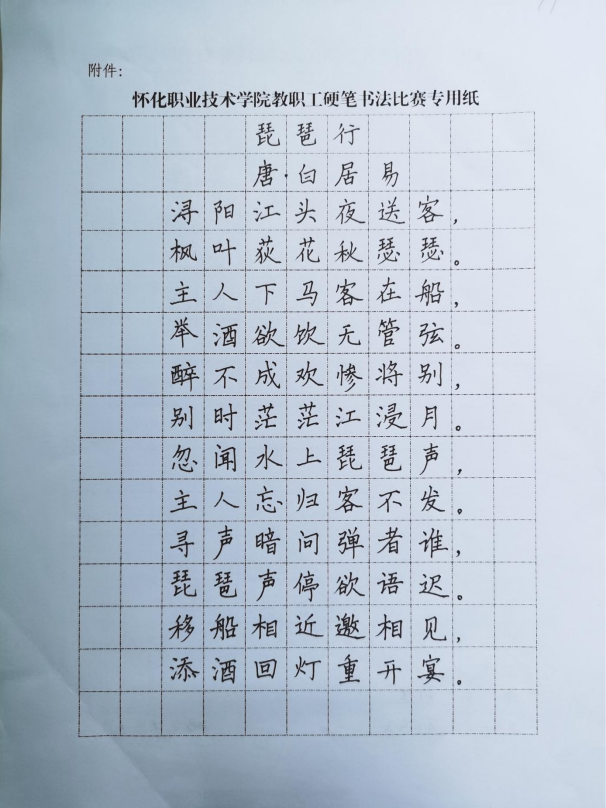 附件：
怀化职业技术学院教职工硬笔书法比赛专用纸
琵琶行
唐·白居易
浔阳江头夜送客，
枫叶荻花秋瑟瑟。
主人下马客在船，
举酒欲饮无管弦。
醉不成欢惨将别，
别时茫茫江浸月。
忽闻水上琵琶声，
主人忘归客不发。
寻声暗问弹者谁，
琵琶声停欲语迟。
移船相近邀相见，
添酒回灯重开宴。